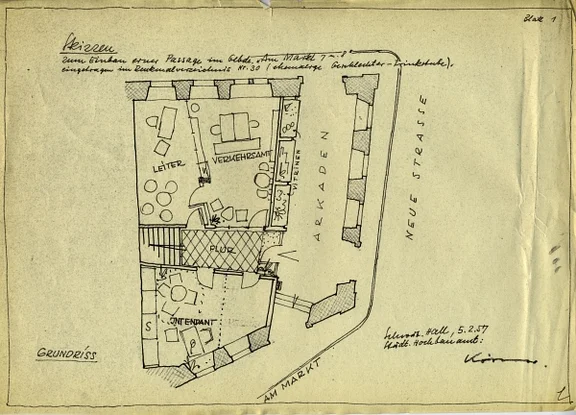 Blatt 1
Skizzen
zum Einbau einer Passage im Gebde. „Am Markt 7 – 8
eingetragen im Denkmalverzeichnis Nr. 30 (ehemalige Geschlechter-Trinkstube).
LEITER
VERKEHRSAMT
VITRINEN
ARKADEN
NEUE STRASSE
FLUR
INTENDANT
S
GRUNDRISS
AM MARKT
Schwäb. Hall, 5.2.57
Städt. Hochbauamt: